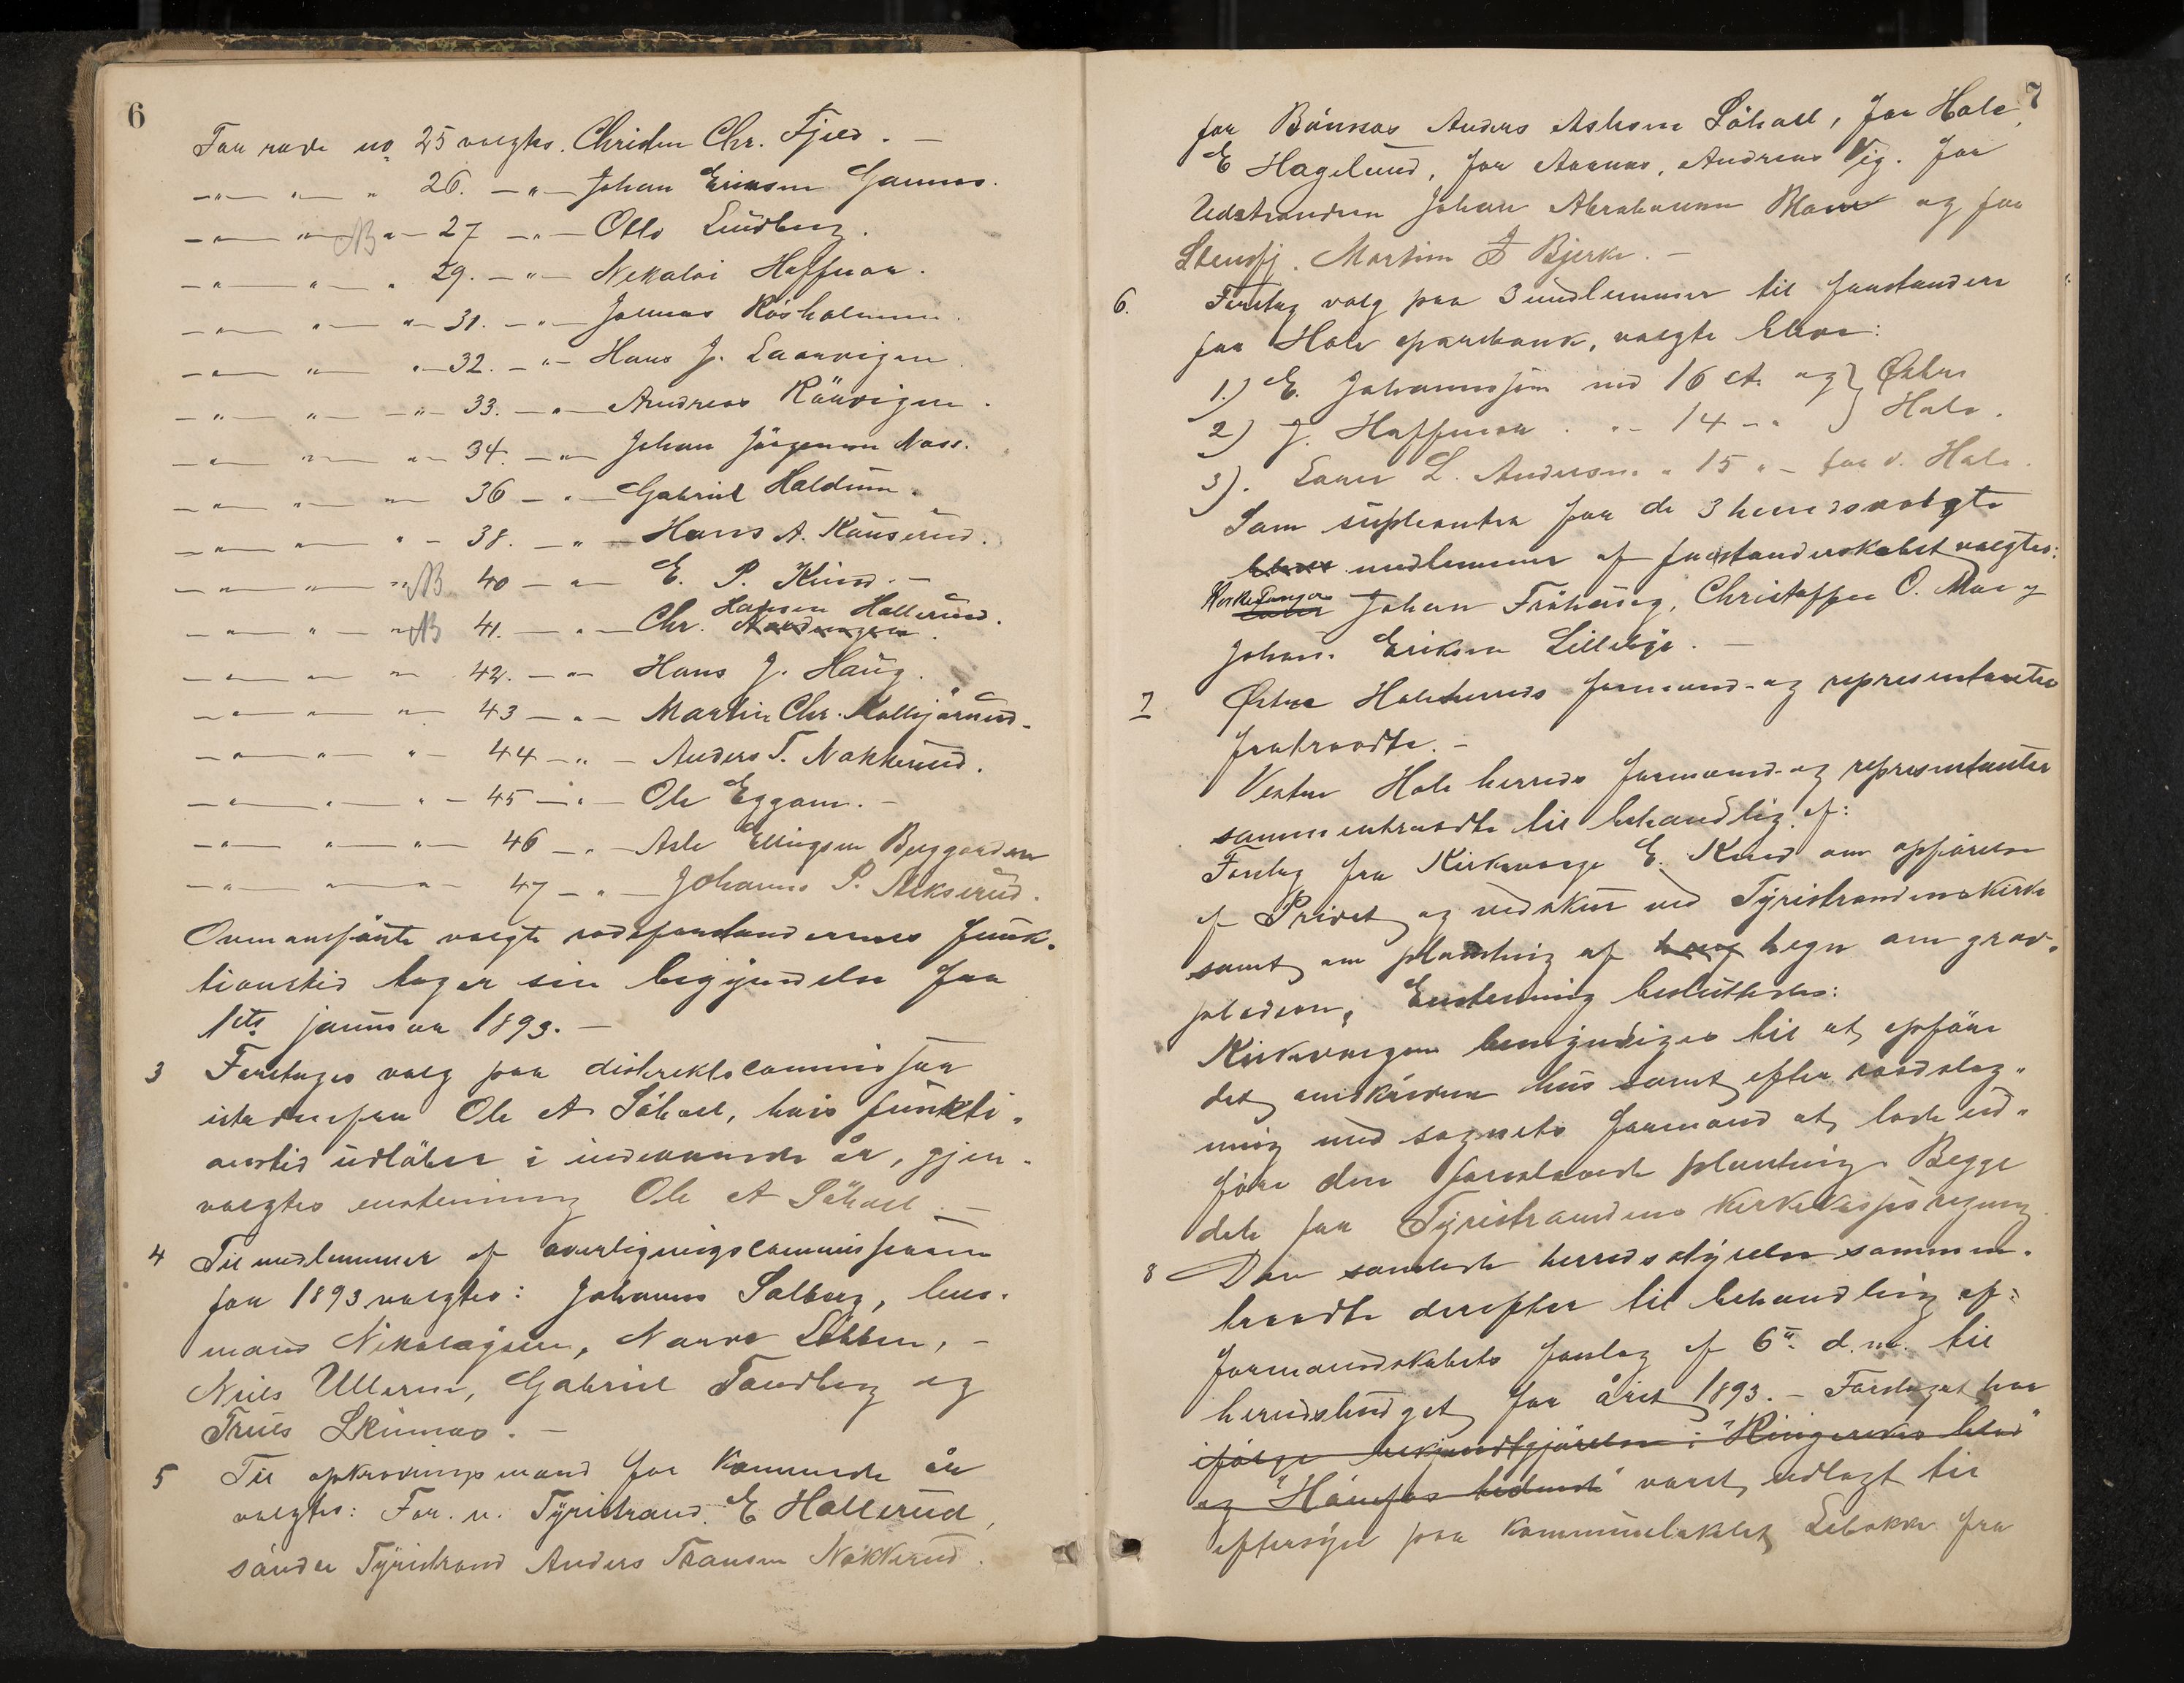 6
For rode no 25 valgtes. Christen Chr. Fjeld. —
—„— „— „ 26. —„— Johan Eriksen Gaarnæs.
—„— „— NB „— 27 —„— Otto Lundberg.
—„— „— „ 29. —„— Nekolai Haffnor.
—„— „— „— 31. —„— Johannes Rösholmen.
—„— „— „— 32. —„— Hans J. Laarvigen
—„— „— —„— 33. —„— Andreas Röärvigen.
—„— „— „— 34. —„— Johan Jörgensen Næss.
—„— „— „— 36 —„— Gabriel Haldum.
—„— „— „— 38. —„— Hans A. Kauserud.
—„— „— „NB 40 —„— E. P. Kind. —
Hansen Hallerud.
—„— „— „NB 41. —„— Chr.
—„— „— „— 42. —„— Hans J. Haug.
—„— „— „— 43 —„— Martin Chr. Kolbjörnrud —
—„— „— „— 44 —„— Anders T. Nakkerud.
—„— „— „— 45 —„— Ole Eggom. —
—„— „— „— 46 —„— Asle Ellingsen Berggarden
—„— „— „— 47 —„— Johannes P. Aekserud.
Ovenanförte valgte rodeforstanderes funk-
tionstid tager sin begyndelse fra
1ste januar 1893. —
3 Foretoges valg paa distriktscommissær
istedenfor Ole A Söhol, hvis funkti-
onstid udlöber i indeværende år, gjen-
valgtes enstemmig Ole A Söhol. —
4 Til medlemmer af overligningscommissionen
for 1893 valgtes: Johannes Solberg, lens-
mand Nikolaysen, Narve Löbben, —
Niels Ullern, Gabriel Tandberg og
Truls Skinnæs. —
5 Til opkrævningsmand for kommende år
valgtes: For. n. Tyristrand. E Hallerud,
söndre Tyristrand Anders Transen Nakkerud.
7
for Bönsnæs Anders Aslesen Söhol, for Hole,
E Hagelund, for Aasnæs, Andreas Vig. for
Utstranden Johan Abrahamsen og for
Stensfj. Martin J Bjerke. —
6. Foretog valg paa 3 medlemmer til forstandere
for Hole sparebank, valgte blev:
1.) E. Johannessen med 16 st. og } Östre
2) J. Haffnor . „— 14 —„ } Hole.
3). Lauer L. Andersen. „ 15 „— for v. Hole.
Som supleanter for de 3 herredsvalgte
blev medlemmer af forstanderskabet valgtes:
Johan Fröhaug, Christoffer O. Moe og
Johan Eriksen Lillebye. —
7 Östre Hole herreds formand- og representanter
fratraadte. —
Vestre Hole herreds formand- og representanter
sammentraadte til behandling af:
Forslag fra Kirkeværge E. Kind om opförelse
af Privet og vedskur ved Tyristrandens kirke
samt om plantning af hegn om grav-
pladsen. Enstemmig besluttedes:
Kirkeværgen bemyndiges til at opföre
det omskrevne hus samt efter raadslag-
ning med sognets formand at lade ud-
före den foreslaaede plantning. Begge
dele for Tyristrandens kirkekasses regning.
8 Den samlede herredsstyrelse sammen-
traadte derefter til behandling af:
formandskabets forslag af 6te d.m. til
herredsbudget for året 1893. — Forslaget har
ifölge bekjendtgjörelse i "Ringerikes blad"
og "Hönefos tidende" været udlagt til
eftersyn paa kommunelokalet Libakke fra